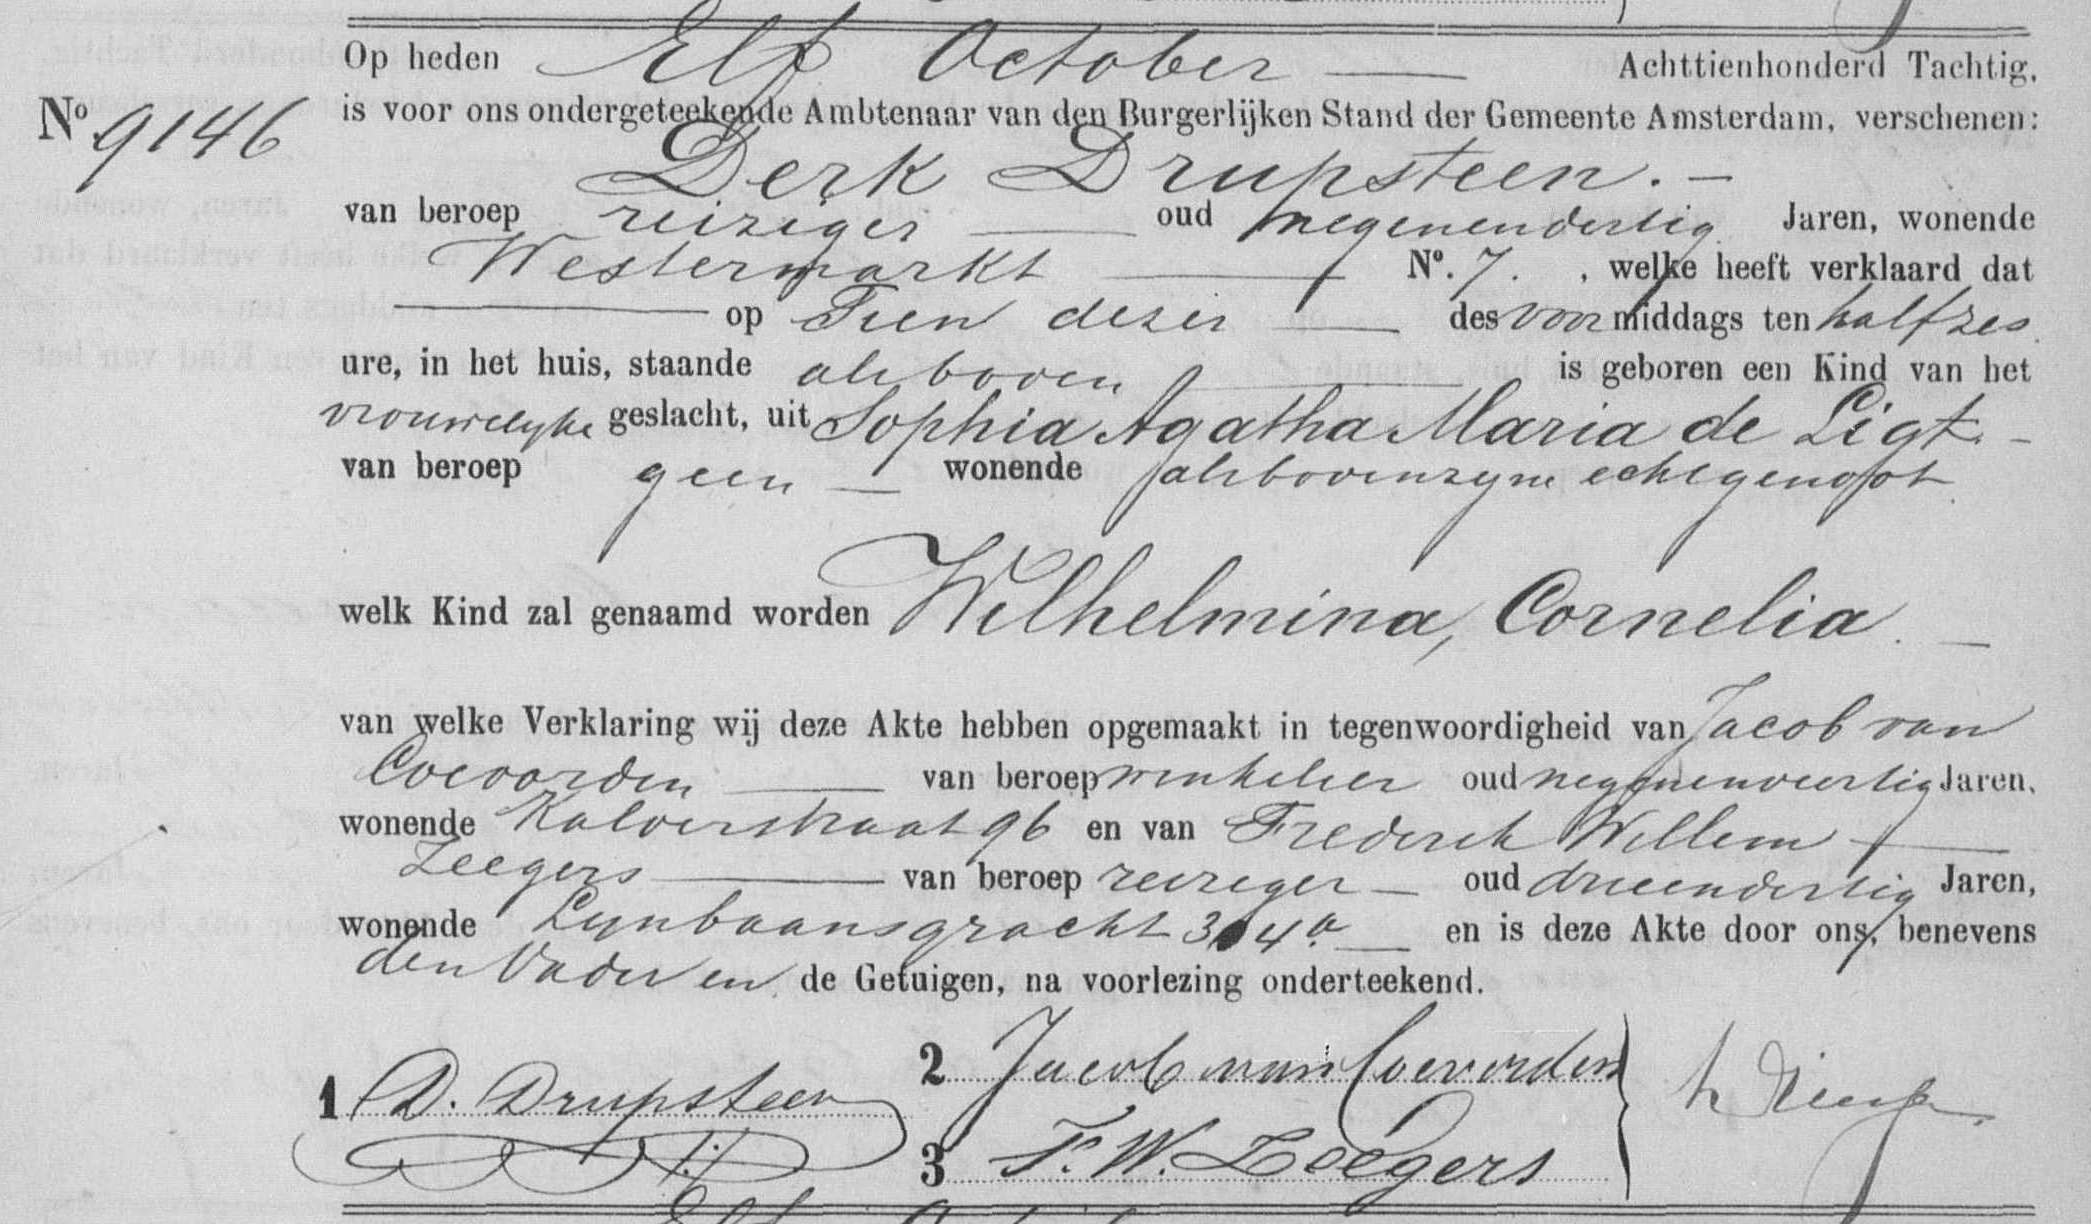 Op heden Elf October Achttienhonderd Tachtig,
No 9146
is voor ons ondergeteekende Ambtenaar van den Burgerlijken Stand der Gemeente Amsterdam, verschenen:
Derk Drupsteen.
van beroep reiziger oud negenendertig Jaren, wonende
Westermarkt No. 7. , welke heeft verklaard dat
op Tien dezer des voormiddags ten half zes
ure, in het huis, staande als boven is geboren een Kind van het
vrouwelyke geslacht, uit Sophia Agatha Maria de Ligt.
van beroep geen wonende als boven zyne echtgenoot
welk Kind zal genaamd worden Wilhelmina, Cornelia.
van welke Verklaring wij deze Akte hebben opgemaakt in tegenwoordigheid van Jacob van
Coevorden van beroep winkelier oud negenenveertig Jaren,
wonende Kalverstraat 96 en van Frederik Willem
Zeegers van beroep reiziger oud drieendertig Jaren,
wonende Lynbaansgracht en is deze Akte door ons, benevens
den Vader en de Getuigen, na voorlezing onderteekend.
1 D. Drupsteen
2 Jacob van Coevorden
3 F. W. Zeegers